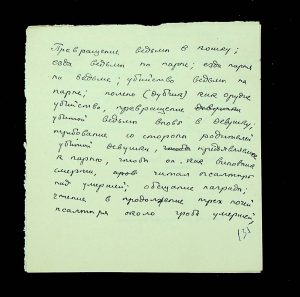 Превращение ведьмы в кошку;
езда ведьмы на парне; езда парня
на ведьме; убийство ведьмы на
парне; полено (дубина) как орудие
убийства, превращение
убитой ведьмы вновь в девушку,
требование со стороны родителей
убитой девушки, предъявляемое
к парню, чтобы он, как виновник
смерти, читал псалтирь
над умершей; обещание награды;
чтение в продолжение трех ночей
псалтиря около гроба умершей,